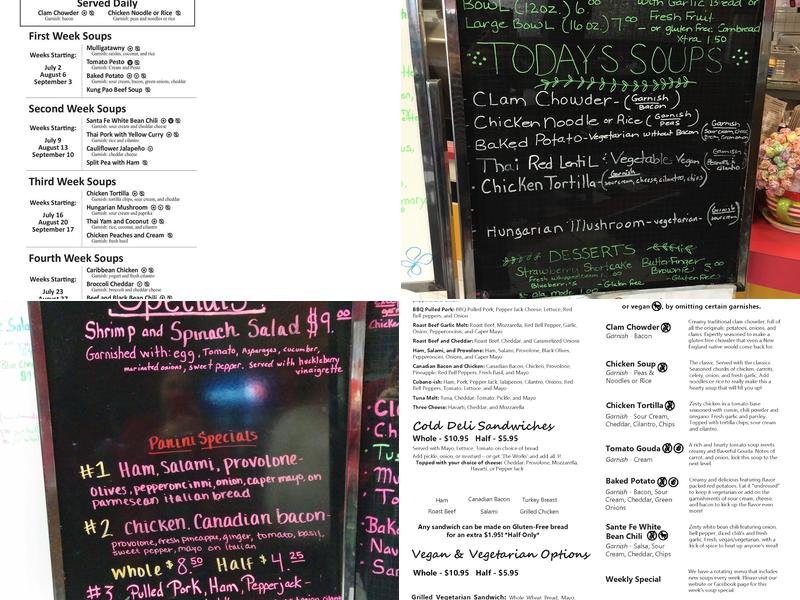 Served Daily
Clam Chowder
Garnish: bacon
Chicken Noodle or Rice
Garnish: peas and noodles or rice
First Week Soups
Weeks Starting:
July 2
August 6
September 3
Mulligatawny
Garnish: raisins, coconut, and rice
Tomato Pesto
Garnish: Cream and Pesto
Baked Potato
Garnish: sour cream, bacon, green onions, cheddar
Kung Pao Beef Soup
Second Week Soups
Weeks Starting:
July 9
August 13
September 10
Santa Fe White Bean Chili
Garnish: sour cream and cheddar cheese
Thai Pork with Yellow Curry
Garnish: rice and cilantro
Cauliflower Jalapeño
Garnish: cheddar cheese
Split Pea with Ham
Third Week Soups
Weeks Starting:
July 16
August 20
September 17
Chicken Tortilla
Garnish: tortilla chips, sour cream, and cheddar
Hungarian Mushroom
Garnish: sour cream and paprika
Thai Yam and Coconut
Garnish: rice, coconut, and cilantro
Chicken Peaches and Cream
Garnish: fresh basil
Fourth Week Soups
Weeks Starting:
July 23
Caribbean Chicken
Garnish: yogurt and fresh cilantro
Broccoli Cheddar
Garnish: broccoli and cheddar cheese
Beef and Black Bean Chili
Bowl (12oz.) 6.00 with Garlic Bread or
Large Bowl (16oz.) 7.00 Fresh Fruit
- or gluten free Cornbread
Xtra 1.50
TODAYS SOUPS
Clam Chowder - (Garnish Bacon)
Chicken Noodle or Rice (Garnish Peas)
Baked Potato - vegetarian without Bacon
Thai Red Lentil - Vegetable - Vegan
Chicken Tortilla - (Garnish sour cream, cheese, cilantro, chips)
Hungarian Mushroom - vegetarian - (Garnish sour cream)
DESSERTS
Strawberry Shortcake
Butterfinger
Brownie
Gluten Free
Specials
Shrimp and Spinach Salad $9.00
Garnished with: egg, Tomato, Asparagus, cucumber,
marinated onions, sweet pepper. Served with huckleberry
vinaigrette
Panini Specials
#1 Ham, Salami, provolone-
olives, pepperoncini, onion, caper mayo, on
parmesean italian bread
#2 Chicken, Canadian bacon-
provolone, fresh pineapple, ginger, tomato, basil,
sweet pepper, mayo on italian
Whole $8.50 Half $4.25
#3 Pulled Pork, Ham, Pepperjack-
BBQ Pulled Pork: BBQ Pulled Pork, Pepper Jack Cheese, Lettuce, Red
Bell Peppers, and Onion
Roast Beef Garlic Melt: Roast Beef, Mozzarella, Red Bell Pepper, Garlic,
Onion, Pepperoncinis, and Caper Mayo
Roast Beef and Cheddar: Roast Beef, Cheddar, and Caramelized Onions
Ham, Salami, and Provolone: Ham, Salami, Provolone, Black Olives,
Pepperoncini, Onions, and Caper Mayo
Canadian Bacon and Chicken: Canadian Bacon, Chicken, Provolone,
Pineapple, Red Bell Peppers, Fresh Basil, and Mayo
Cubano-ish: Ham, Pork, Pepper Jack, Jalapenos, Cilantro, Onions, Red
Bell Peppers, Tomato, Lettuce, and Mayo
Tuna Melt: Tuna, Cheddar, Tomato, Pickle, and Mayo
Three Cheese: Havarti, Cheddar, and Mozzarella
Cold Deli Sandwiches
Whole - $10.95 Half - $5.95
Served with Mayo, Lettuce, Tomato on choice of bread
Add pickle, onion, or mustard - or get 'The Works' and add all 3!
Topped with your choice of cheese: Cheddar, Provolone, Mozzarella,
Havarti, or Pepper Jack
Ham Canadian Bacon Turkey Breast
Roast Beef Salami Grilled Chicken
Any sandwich can be made on Gluten-Free bread
for an extra $1.95! *Half Only*
Vegan & Vegetarian Options
Whole - $10.95 Half - $5.95
Grilled Vegetarian Sandwich: Whole Wheat Bread, Mayo,
or vegan, by omitting certain garnishes.
Clam Chowder
Garnish - Bacon
Creamy traditional clam chowder, full of
all the originals: potatoes, onions, and
clams. Expertly seasoned to make a
gluten free chowder that even a New
England native would come back for.
Chicken Soup
Garnish - Peas &
Noodles or Rice
The classic. Served with the classics.
Seasoned chunks of chicken, carrots,
celery, onion, and fresh garlic. Add
noodles or rice to really make this a
hearty soup that will fill you up!
Chicken Tortilla
Garnish - Sour Cream,
Cheddar, Cilantro, Chips
Zesty chicken in a tomato base
seasoned with cumin, chili powder and
oregano. Fresh garlic and parsley.
Topped with tortilla chips, sour cream
and cilantro.
Tomato Gouda
Garnish - Cream
A rich and hearty tomato soup meets
creamy and flavorful Gouda. Notes of
carrot, and onion, kick this soup to the
next level
Baked Potato
Garnish - Bacon, Sour
Cream, Cheddar, Green
Onions
Creamy and delicious featuring flavor
packed red potatoes. Eat it "undressed"
to keep it vegetarian or add on the
garnishments of sour cream, cheese,
and bacon to kick up the flavor even
more!
Santa Fe White
Bean Chili
Garnish - Salsa, Sour
Cream, Cheddar, Chips
Zesty white bean chili featuring onion,
bell pepper, diced chili's and fresh
garlic. Fresh, vegan/vegetarian, with a
kick of spice to heat up anyone's meal!
Weekly Special
We have a rotating menu that includes
new soups every week. Please visit our
website or Facebook page for this
week's soup special